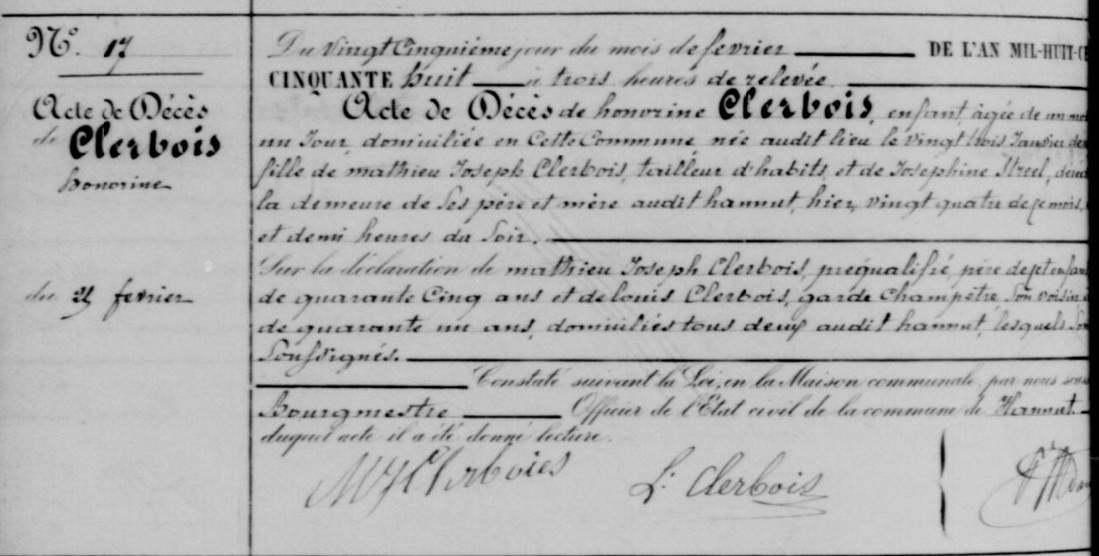 N°. 17
Acte de Décès
de Clerbois
honorine
du 25 fevrier
Du Vingt Cinquième jour du mois de fevrier DE L'AN MIL-HUIT-C
CINQUANTE huit à trois heures de relevée.
Acte de Décès de honorine Clerbois, enfant, agée de un mois
un Jour, domiciliée en Cette Commune, née audit lieu le vingt trois Janvier
fille de mathieu Joseph Clerbois, tailleur d'habits, et de Josephine
la demeure de Ses père et mère audit hannut, hier, vingt quatre de ce mois,
et demi heures du Soir.
Sur la déclaration de mathieu Joseph Clerbois, prequalifié, père de cet enfant
de quarante Cinq ans et de louis Clerbois, garde Champêtre, Son voisin,
de quarante un ans, domiciliés tous deux audit hannut, lesquels Son
Soussignés.
Constaté suivant la Loi, en la Maison communale, par nous sous
Bourgmestre Officier de l'Etat civil de la commune de Hannut
duquel acte il a été donné lecture.
MJ Clerboies L. Clerbois